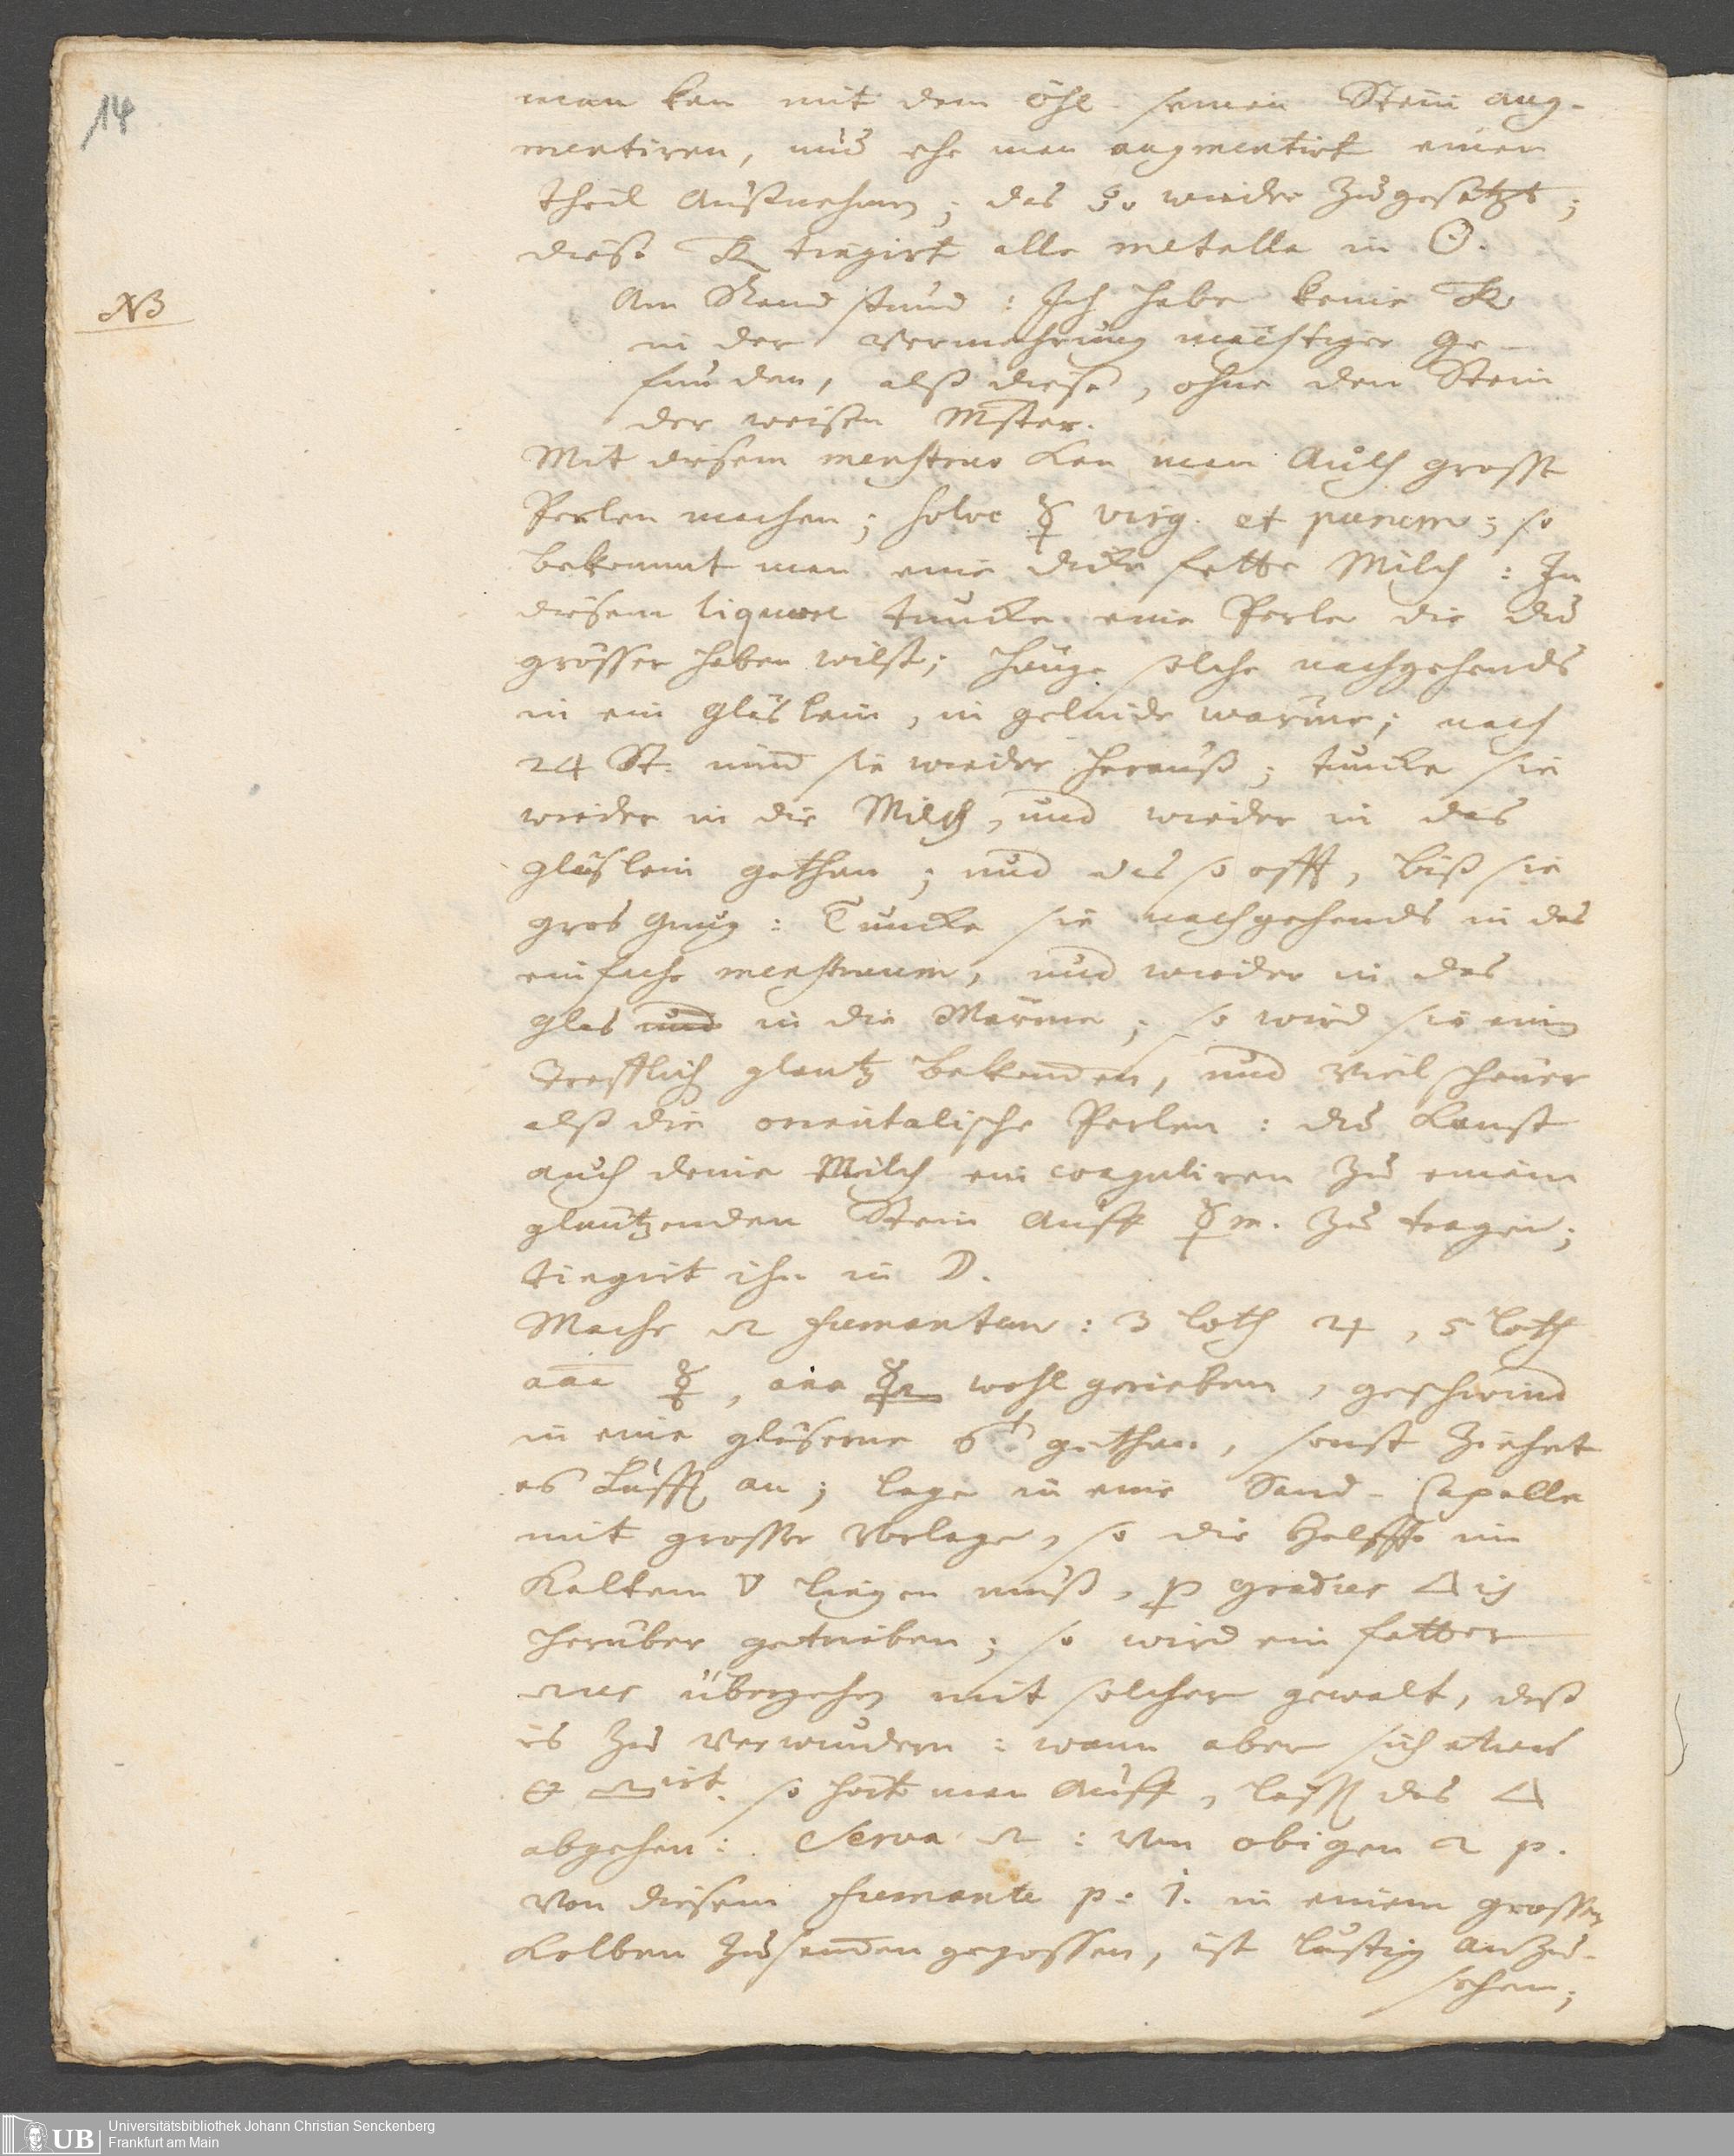 14
man kan mit dem öhl seinen Stein aug-
mentiren, und ehe man augmentirt einen
theil außnehmen; das so wieder zugesetzt;
diese tingirt alle metalla in ☉.
NB
Am Rand stund: Ich habe keine
in der vermehrung mächtiger ge-
funden, alß diese, ohne den Stein
der weisen Mster.
Mit diesem menstruo kan man auch grosse
Perlen machen; solve ☿ virg. et purum; so
bekommt man eine dicke fette Milch: In
diesem liquore tuncke eine Perle die du
grösser haben wilst; hänge solche nachgehends
in ein gläslein, in gelinde wärme; nach
24 St. nim̄ sie wieder herauß; tuncke sie
wieder in die Milch, und wieder in das
gläslein gethan; und das so offt, biß sie
gros gnug: Tuncke sie nachgehends in das
einfache menstruum, und wieder in das
glas und in die Wärme; so wird sie einen
trefflich glantz bekom̄en, und viel schöner
alß die orientalische Perlen: du kanst
auch deine Milch ein coaguliren zu einem
gläntzenden Stein auff ☿ m. zu tragen;
tingirt ihn in ☽.
Mache fumantem: 3 loth ♃, 5 loth
☿, wohl gerieben, geschwind
in eine gläserne gethan, sonst ziehet
es lufft an; lege in eine Sand-Capelle
mit grosser Vorlage, so die helffte im
kaltem 🜄 liegen muß, p gradus 🜂 is
herüber getrieben; so wird ein fetter
übergehen mit solcher gewalt, daß
es zu verwundern: wann aber sich etwas
so hört man auff, lässt das 🜂
abgehen: Serva: von obigen p.
von diesem fumante p. 1. in einem grossen
kolben zusam̄en gegossen, ist lustig anzu-
sehen;
UB
Universitätsbibliothek Johann Christian Senckenberg
Frankfurt am Main